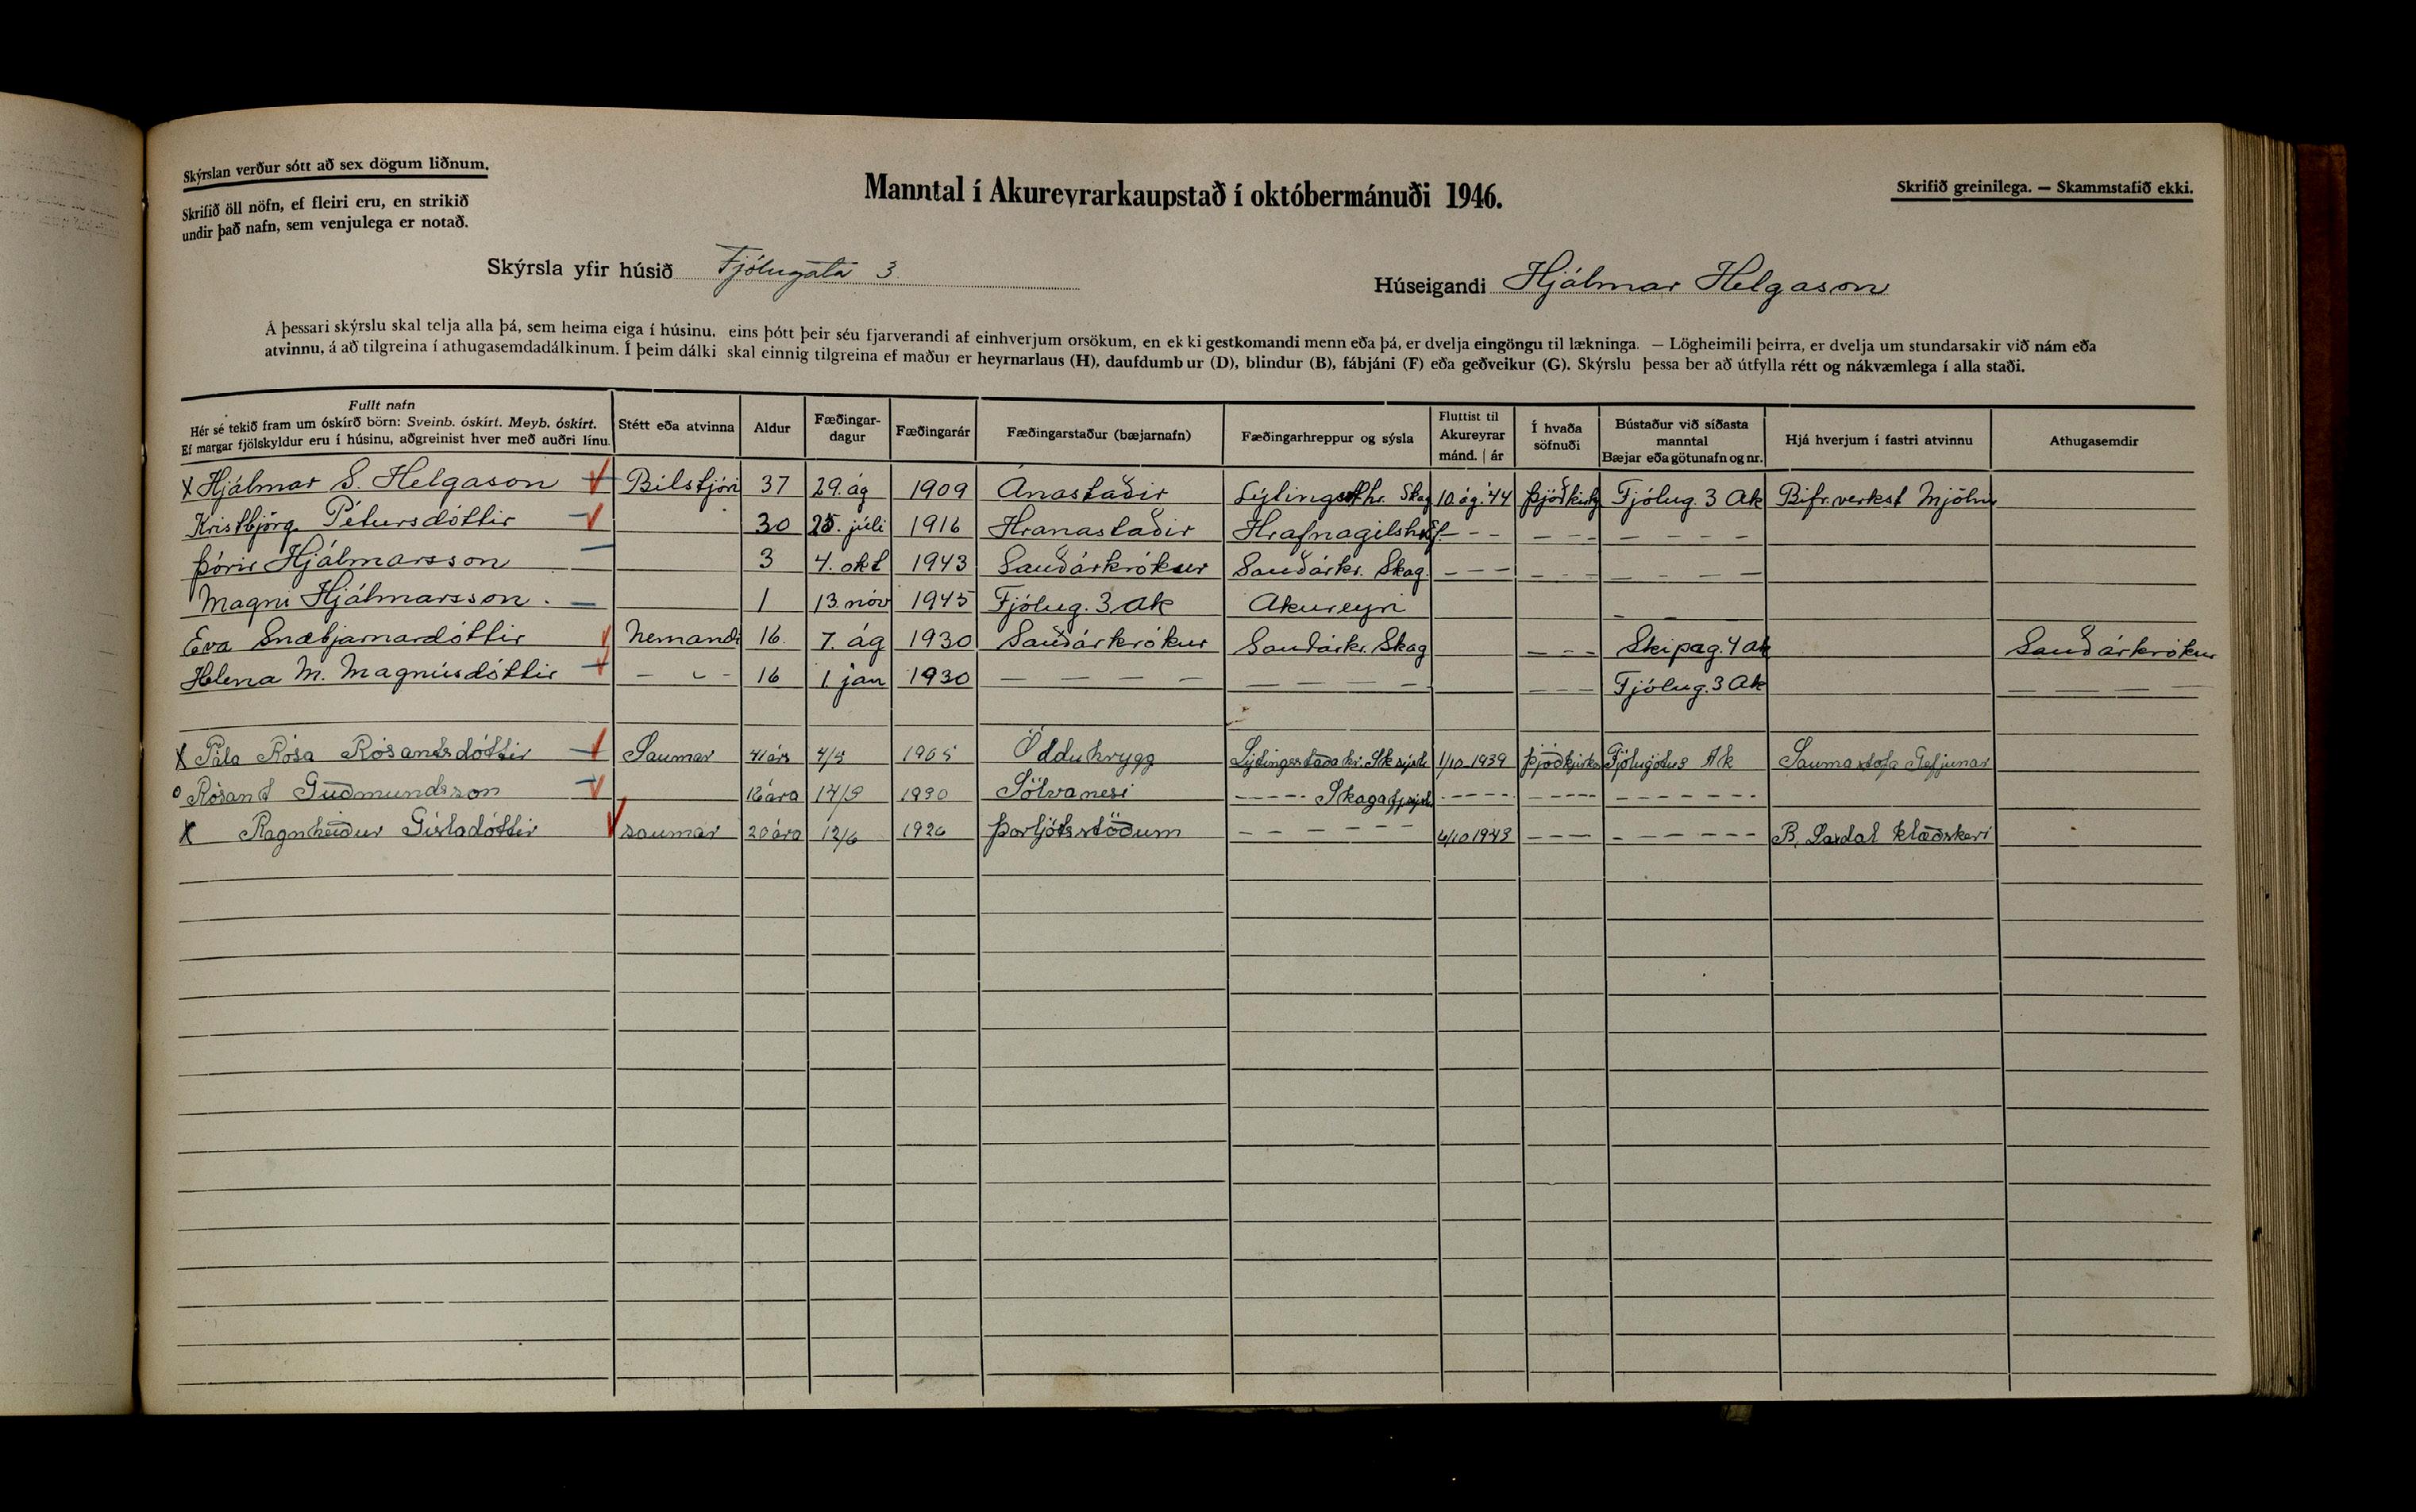 Skýrslan verður sótt að sex dögum liðnum.
Skrifið öll nöfn, ef fleiri eru, en strikið
undir það nafn, sem venjulega er notað.
Manntal í Akureyrarkaupstað í októbermánuði 1946.
Skrifið greinilega. — Skammstafið ekki.
Skýrsla yfir húsið Fjólugata 3
Húseigandi Hjálmar Helgason
Á þessari skýrslu skal telja alla þá, sem heima eiga í húsinu, eins þótt þeir séu fjarverandi af einhverjum orsökum, en ekki gestkomandi menn eða þá, er dvelja eingöngu til lækninga. — Lögheimili þeirra, er dvelja um stundarsakir við nám eða
atvinnu, á að tilgreina í athugasemdadálkinum. Í þeim dálki skal einnig tilgreina ef maður er heyrnarlaus (H), daufdumbur (D), blindur (B), fábjáni (F) eða geðveikur (G). Skýrslu þessa ber að útfylla rétt og nákvæmlega í alla staði.
Fullt nafn
Hér sé tekið fram um óskírð börn: Sveinb. óskírt. Meyb. óskírt.
Ef margar fjölskyldur eru í húsinu, aðgreinist hver með auðri línu.
Stétt eða atvinna
Aldur
Fæðingar-
dagur
Fæðingarár
Fæðingarstaður (bæjarnafn)
Fæðingarhreppur og sýsla
Fluttist til
Akureyrar
mánd. | ár
Í hvaða
söfnuði
Bústaður við síðasta
manntal
Bæjar eða götunafn og nr.
Hjá hverjum í fastri atvinnu
Athugasemdir
x Hjálmar S. Helgason Bílstjóri 37 29. ág 1909 Ánastaðir Lýtingsst.hr. Skag 10 ág. '44 Þjóðkirkj Fjólug. 3 Ak Bifr.verkst Mjölnir
Kristbjörg Pétursdóttir 30 25. júlí 1916 Hranastaðir Hrafnagilshr - - - - - - - - - -
Þórir Hjálmarsson 3 4. okt 1943 Sauðárkrókur Sauðárkr. Skag. - - - - - - - - - -
Magni Hjálmarsson. 1 13. nóv 1945 Fjólug. 3 Ak Akureyri - -
Eva Snæbjarnardóttir Nemandi 16. 7. ág 1930 Sauðárkrókur Sauðárkr. Skag - - - Skipag. 4 Ak Sauðárkrókur
Helena M. Magnúsdóttir - - - 16 1. jan 1930 - - - - - - - - - - - Fjólug. 3 Ak - - - -
x Pála Rósa Rósantsdóttir Saumar 41 árs 4/5 1905 Oddu hrygg Lýtingsstaða hr. Sk sýsla 1/10 1939 Þjóðkirkj Fjólugötu 3 Ak Saumastofa Gefjunar
o Rósant Guðmundsson 16 ára 17/9 1930 Sölvanesi - - - - Skagafj.sýsl - - - - - - - - - - - - - - -
x Ragnheiður Gísladóttir saumar 20 ára 12/6 1926 Þorljótsstöðum - - - - - - 6/10 1943 - - - - - - - - - B. Laxdal klæðskeri